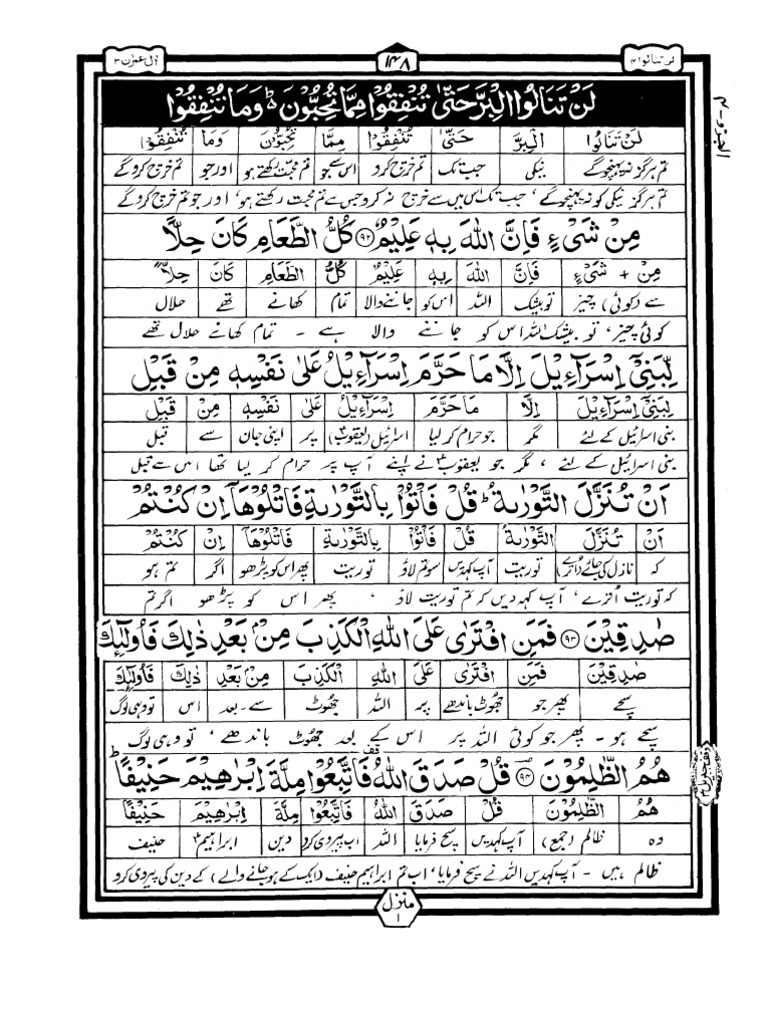 لن تنالوا ۴
۱۴۸
اٰل عمرٰن ۳
الجزو-۴
لَنْ تَنَالُوا الْبِرَّ حَتّٰى تُنْفِقُوْا مِمَّا تُحِبُّوْنَ ؕ وَمَا تُنْفِقُوْا
لَنْ تَنَالُوا الْبِرَّ حَتّٰى تُنْفِقُوْا مِمَّا تُحِبُّوْنَ وَمَا تُنْفِقُوْا
تم ہرگز نہ پہنچو گے نیکی جب تک تم خرچ کرو اس سے جو تم محبت رکھتے ہو اور جو تم خرچ کرو گے
تم ہرگز نیکی کو نہ پہنچو گے ' جب تک اس میں سے خرچ نہ کرو جس سے تم محبت رکھتے ہو ' اور جو تم خرچ کرو گے
مِنْ شَىْءٍ فَاِنَّ اللّٰهَ بِهٖ عَلِيْمٌ ۹۲ كُلُّ الطَّعَامِ كَانَ حِلًّا
مِنْ + شَىْءٍ فَاِنَّ اللّٰهَ بِهٖ عَلِيْمٌ كُلُّ الطَّعَامِ كَانَ حِلًّا
سے (کوئی) چیز تو بیشک اللہ اس کو جاننے والا تمام کھانے تھے حلال
کوئی چیز ' تو بیشک اللہ اس کو جاننے والا ہے - تمام کھانے حلال تھے
لِّبَنِىْٓ اِسْرَآءِيْلَ اِلَّا مَا حَرَّمَ اِسْرَآءِيْلُ عَلٰى نَفْسِهٖ مِنْ قَبْلِ
لِبَنِىْٓ اِسْرَآءِيْلَ اِلَّا مَا حَرَّمَ اِسْرَآءِيْلُ عَلٰى نَفْسِهٖ مِنْ قَبْلِ
بنی اسرائیل کے لئے مگر جو حرام کر لیا اسرائیل (یعقوبؑ) پر اپنی جان سے قبل
بنی اسرائیل کے لئے ، مگر جو یعقوبؑ نے اپنے آپ پر حرام کر لیا تھا اس سے قبل
اَنْ تُنَزَّلَ التَّوْرٰىةُ ؕ قُلْ فَاْتُوْا بِالتَّوْرٰىةِ فَاتْلُوْهَآ اِنْ كُنْتُمْ
اَنْ تُنَزَّلَ التَّوْرٰىةُ قُلْ فَاْتُوْا بِالتَّوْرٰىةِ فَاتْلُوْهَآ اِنْ كُنْتُمْ
کہ نازل کی جائے (اُترے) توریت آپ کہدیں سو تم لاؤ توریت پھر اس کو پڑھو اگر تم ہو
کہ توریت اُترے ' آپ کہہ دیں کہ تم توریت لاؤ ' پھر اس کو پڑھو اگر تم
صٰدِقِيْنَ ۹۳ فَمَنِ افْتَرٰى عَلَى اللّٰهِ الْكَذِبَ مِنْۢ بَعْدِ ذٰلِكَ فَاُولٰٓئِكَ
صٰدِقِيْنَ فَمَنِ افْتَرٰى عَلَى اللّٰهِ الْكَذِبَ مِنْۢ بَعْدِ ذٰلِكَ فَاُولٰٓئِكَ
سچے پھر جو جھوٹ باندھے پر اللہ جھوٹ سے - بعد اس تو وہی لوگ
سچے ہو - پھر جو کوئی اللہ پر اس کے بعد جھوٹ باندھے ' تو وہی لوگ
هُمُ الظّٰلِمُوْنَ ۹۴ قُلْ صَدَقَ اللّٰهُ قف فَاتَّبِعُوْا مِلَّةَ اِبْرٰهِيْمَ حَنِيْفًا ؕ
هُمُ الظّٰلِمُوْنَ قُلْ صَدَقَ اللّٰهُ فَاتَّبِعُوْا مِلَّةَ اِبْرٰهِيْمَ حَنِيْفًا
وہ ظالم (جمع) آپ کہدیں سچ فرمایا اللہ اب پیروی کرو دین ابراہیمؑ حنیف
ظالم ہیں - آپ کہدیں اللہ نے سچ فرمایا ' اب تم ابراہیم حنیف (ایک کے ہو جانے والے) کے دین کی پیروی کرو
منزل
۱